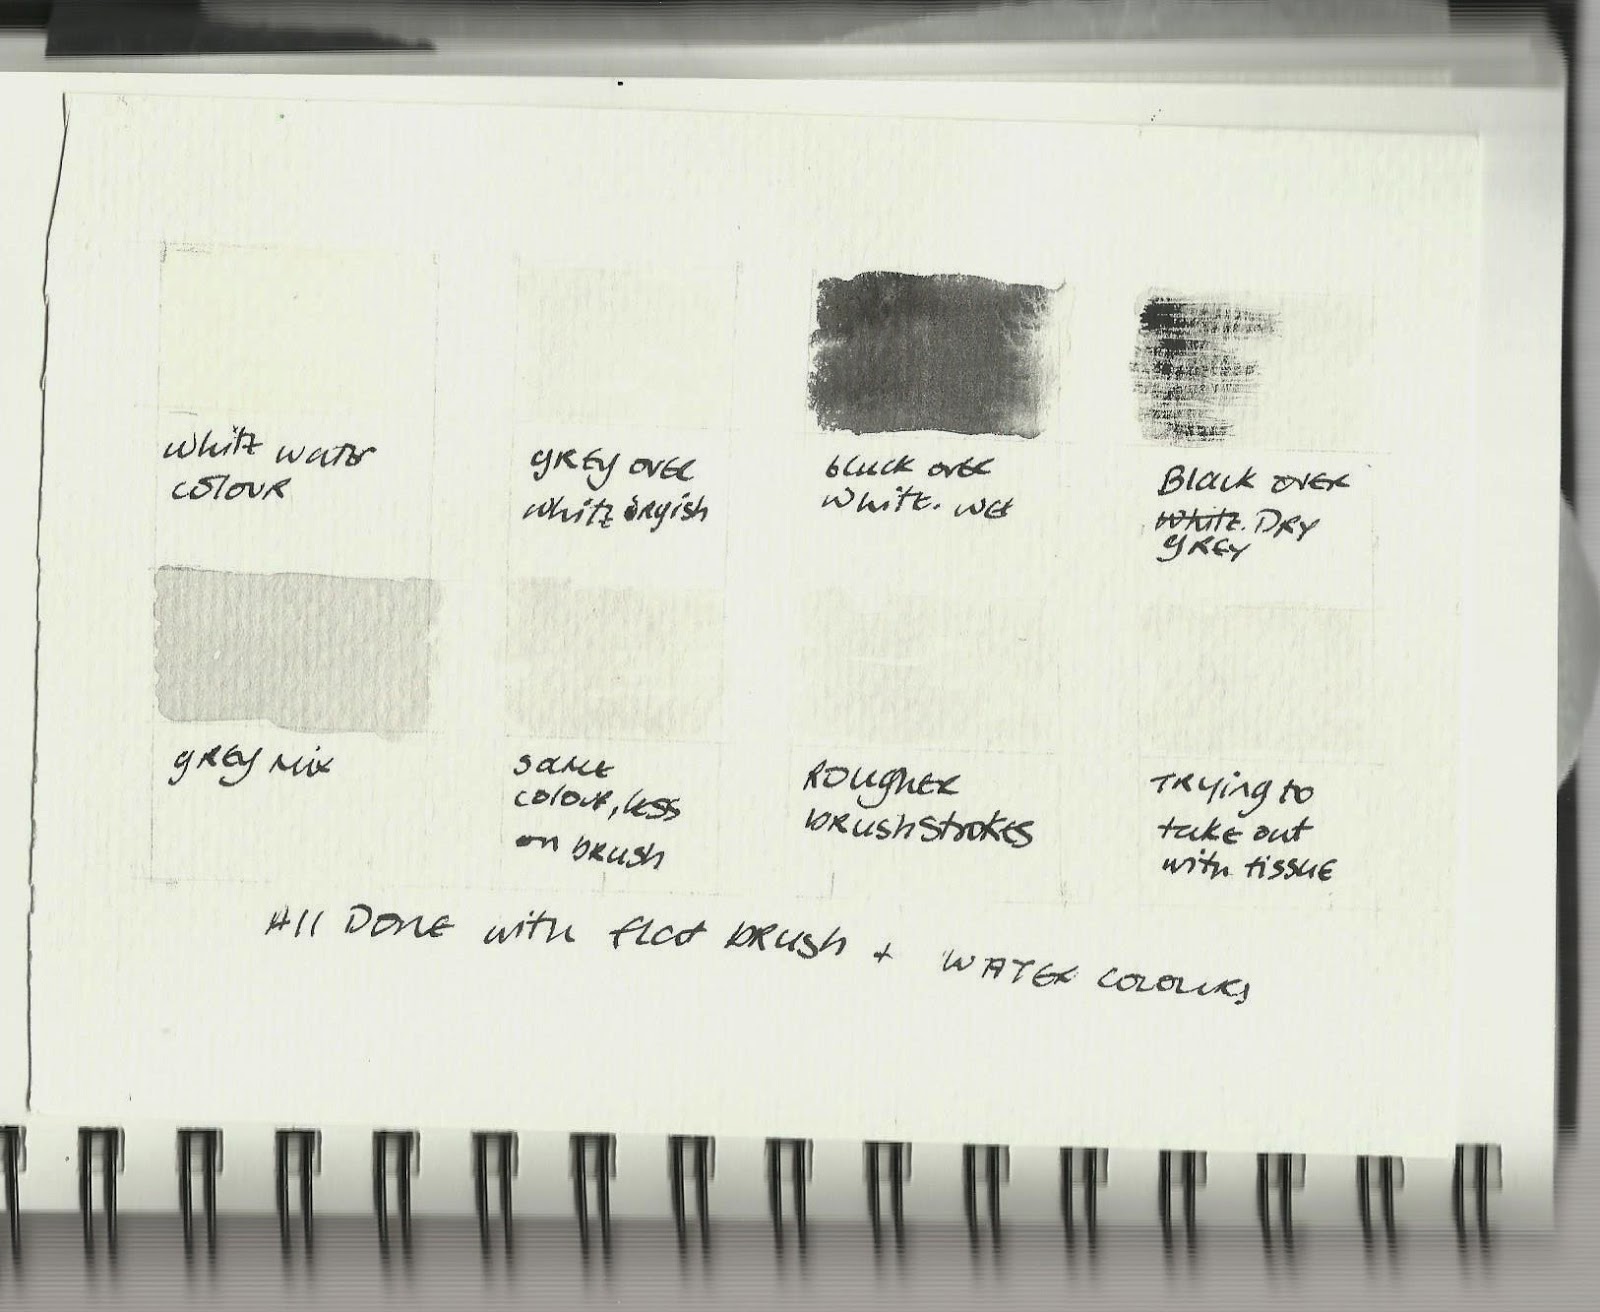 white water
colour
grey over
white dryish
black over
white. wet
Black over
white. DRY
grey
grey mix
same
colour, less
on brush
Rougher
brushstrokes
Trying to
take out
with tissue
All Done with flat brush + WATER COLOURS